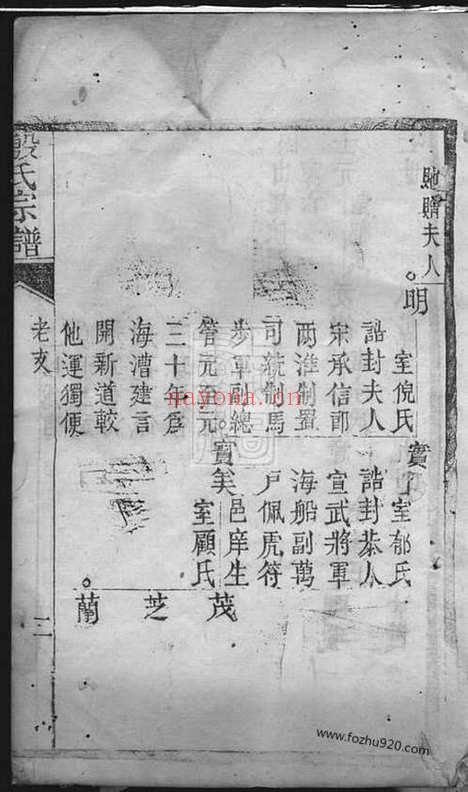 貤贈夫人
明
室倪氏
誥封夫人
宋承信郎
兩淮制置
司統制馬
步軍副總
管元至元
三十年爲
海漕建言
開新道較
他運獨便
實了
室郁氏
誥封恭人
宣武將軍
海船副萬
戶佩虎符
實美
邑庠生
室顧氏
茂
芝
蘭
殷氏宗譜
老支
二
nayona.cn
www.fozhu920.com